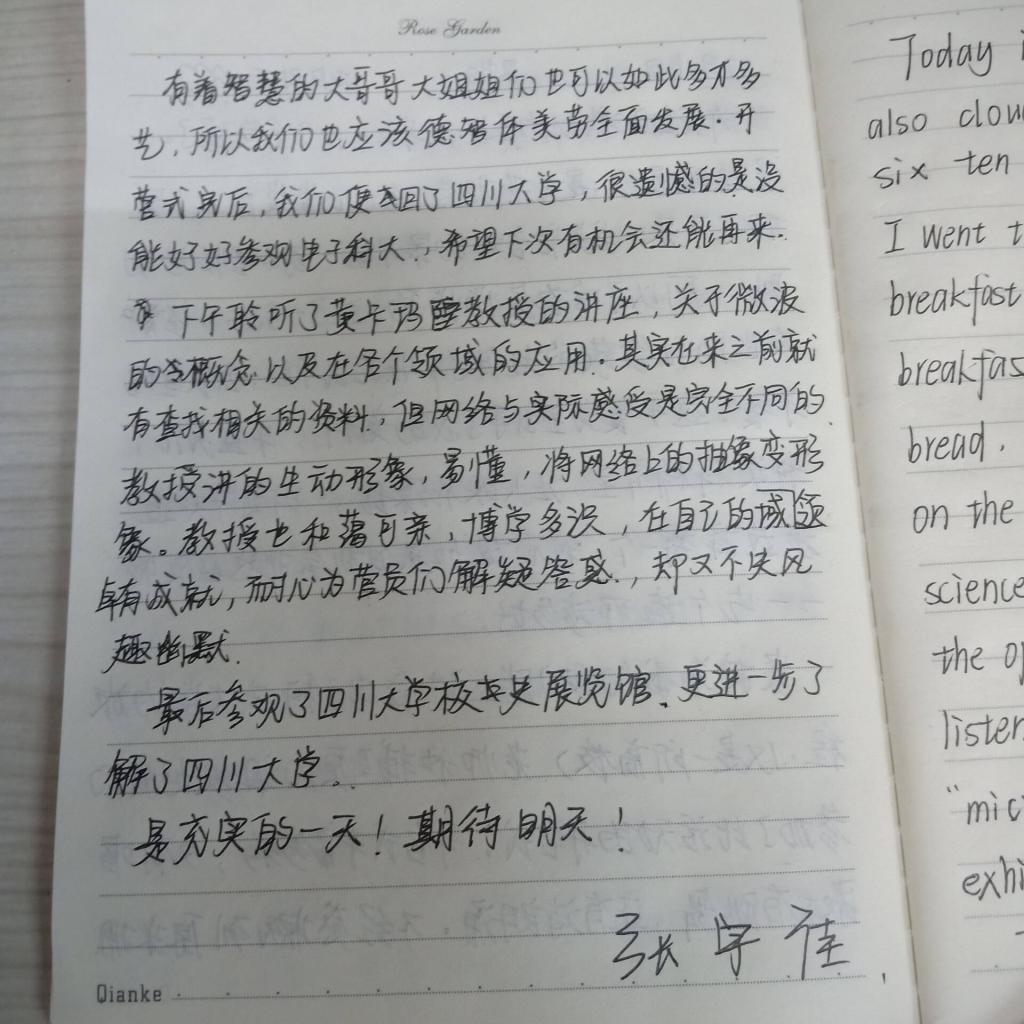 Rose Garden
有着智慧的大哥哥大姐姐们也可以如此多才多
艺,所以我们也应该德智体美劳全面发展.开
营式完后,我们便返回了四川大学,很遗憾的是没
能好好参观电子科大,希望下次有机会还能再来.
下午聆听了黄卡玛教授的讲座,关于微波
的概念以及在各个领域的应用.其实在来之前就
有查找相关的资料,但网络与实际感受是完全不同的.
教授讲的生动形象,易懂,将网络上的抽象变形
象。教授也和蔼可亲,博学多识,在自己的领域
卓有成就,而耐心为营员们解疑答惑,却又不失风
趣幽默.
最后参观了四川大学校史展览馆、更进一步了
解了四川大学.
是充实的一天!期待明天!
张宇佳
Qianke
Today
also
six ten
I went
breakfast
bread.
on the
science
the
exhi